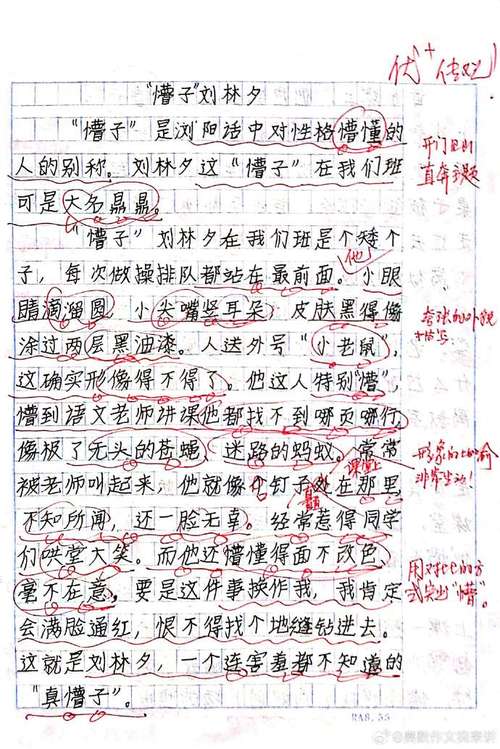 优++ 传观
"懵子"刘林夕
"懵子"是浏阳话中对性格懵懂的
人的别称。刘林夕这"懵子"在我们班
可是大名鼎鼎。
开门见山
直奔主题
"懵子"刘林夕在我们班是个矮个
子,每次做操排队都站在最前面。小眼
他
睛滴溜圆,小尖嘴竖耳朵,皮肤黑得像
涂过两层黑油漆。人送外号"小老鼠",
这确实形像得不得了。他这人特别"懵",
懵到语文老师讲课他都找不到哪页哪行,
像极了无头的苍蝇,迷路的蚂蚁。常常
课堂上
形象的比喻
非常生动!
被老师叫起来,他就像个钉子处在那里,
不知所闻,还一脸无辜。经常惹得同学
们哄堂大笑。而他还懵懂得面不改色,
毫不在意。要是这件事换作我,我肯定
用对比的方
式突出"懵"。
会满脸通红,恨不得找个地缝钻进去。
这就是刘林夕,一个连害羞都不知道的
"真懵子"。